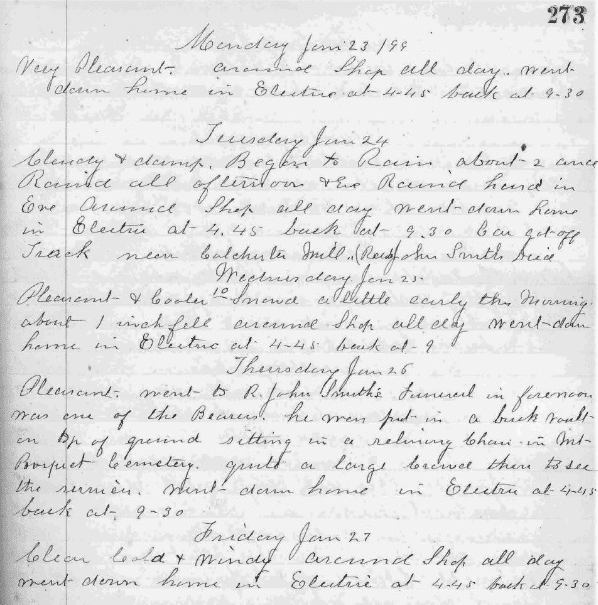 273
Monday Jan 23/99
Very Pleasant. around Shop all day. went
down home in Electric at 4-45 back at 9-30
Tuesday Jan 24
Cloudy & damp. Began to Rain about 2 and
Raind all afternoon & Eve Raind hard in
Eve around Shop all day went down home
in Electric at 4.45 back at 9.30 Car got off
Track near Colchester Mill. John Smith Died
Wednesday Jan 25
Pleasant & Cooler Snowd a little early this Morning.
about 1 inch fell around Shop all day went down
home in Electric at 4-45 back at 9
Thursday Jan 26
Pleasant. went to R. John Smith's Funeral in forenoon
was one of the Bearers. he was put in a brick vault
on top of ground sitting in a reclining Chair in Mt
Prospect Cemetery. quite a large Crowd there to see
the. went down home in Electric at 4-45
back at 9-30
Friday Jan 27
Clear Cold & Windy around Shop all day
went down home in Electric at 4.45 back at 9.30